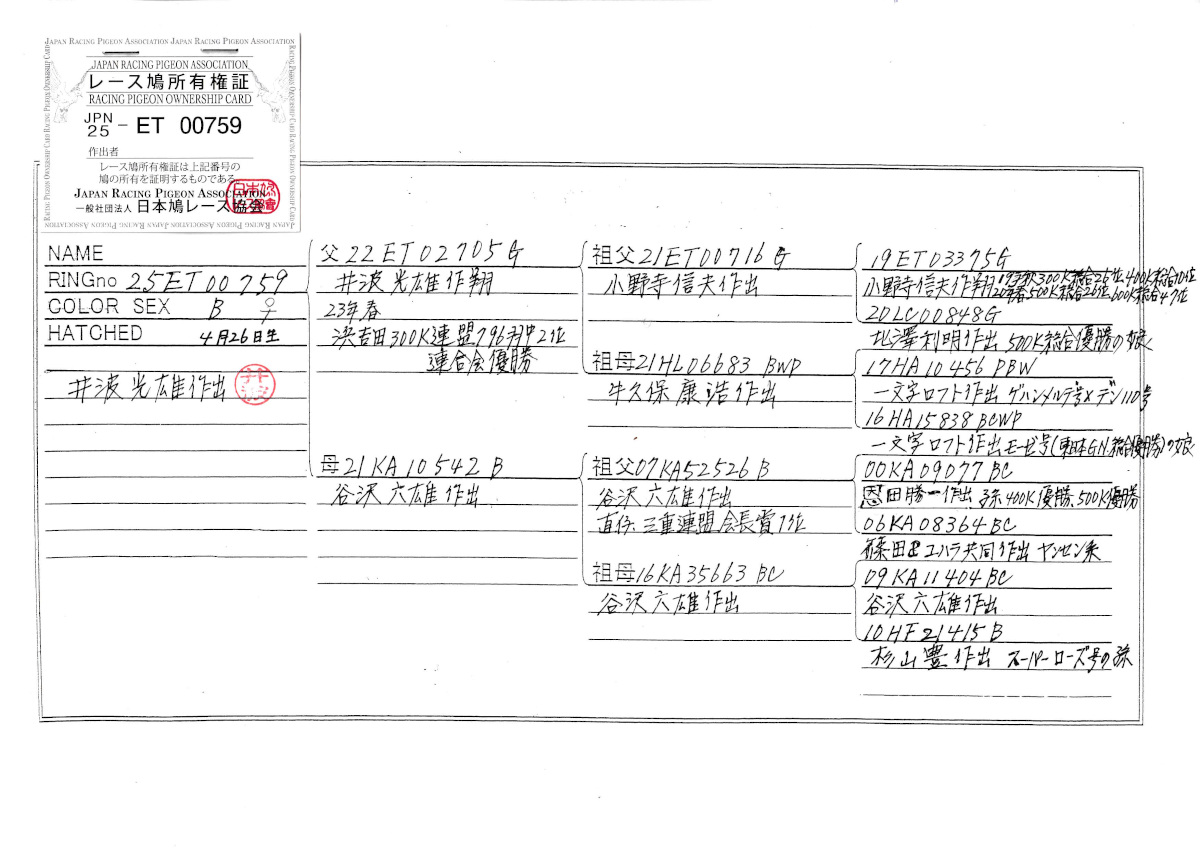 JAPAN RACING PIGEON ASSOCIATION JAPAN RACING PIGEON ASSOCIATION
JAPAN RACING PIGEON ASSOCIATION
レース鳩所有権証
RACING PIGEON OWNERSHIP CARD
JPN
25 - ET 00759
作出者
レース鳩所有権証は上記番号の
鳩の所有を証明するものである。
JAPAN RACING PIGEON ASSOCIATION
一般社団法人 日本鳩レース協会
NAME
RINGno 25ET00759
COLOR SEX B ♀
HATCHED 4月26日生
井波光雄作出
父22ET02705G
井波光雄作翔
23年春
300K連盟796羽中2位
連合会優勝
母21KA10542B
谷沢六雄作出
祖父21ET00716G
小野寺信夫作出
祖母21HL06683 BWP
牛久保康浩作出
祖父07KA52526B
谷沢六雄作出
直仔 三重連盟会長賞1位
祖母16KA35663 BC
谷沢六雄作出
19ET03375G
小野寺信夫作翔 300K総合26位 400K総合10位
500K総合25位 600K総合47位
20LC00848G
北澤利明作出 500K総合優勝の娘
17HA10456 PBW
一文字ロフト作出 ゲハンメルテ号×デン110号
16HA15838BCWP
一文字ロフト作出 モーゼ号(東日本GN総合優勝)の娘
00KA09077BC
恩田勝一作出 孫 400K優勝、500K優勝
06KA08364BC
篠田&ユハラ共同作出 ヤンセン系
09KA11404BC
谷沢六雄作出
10HF21415B
杉山豊作出 スーパーローズ号の孫